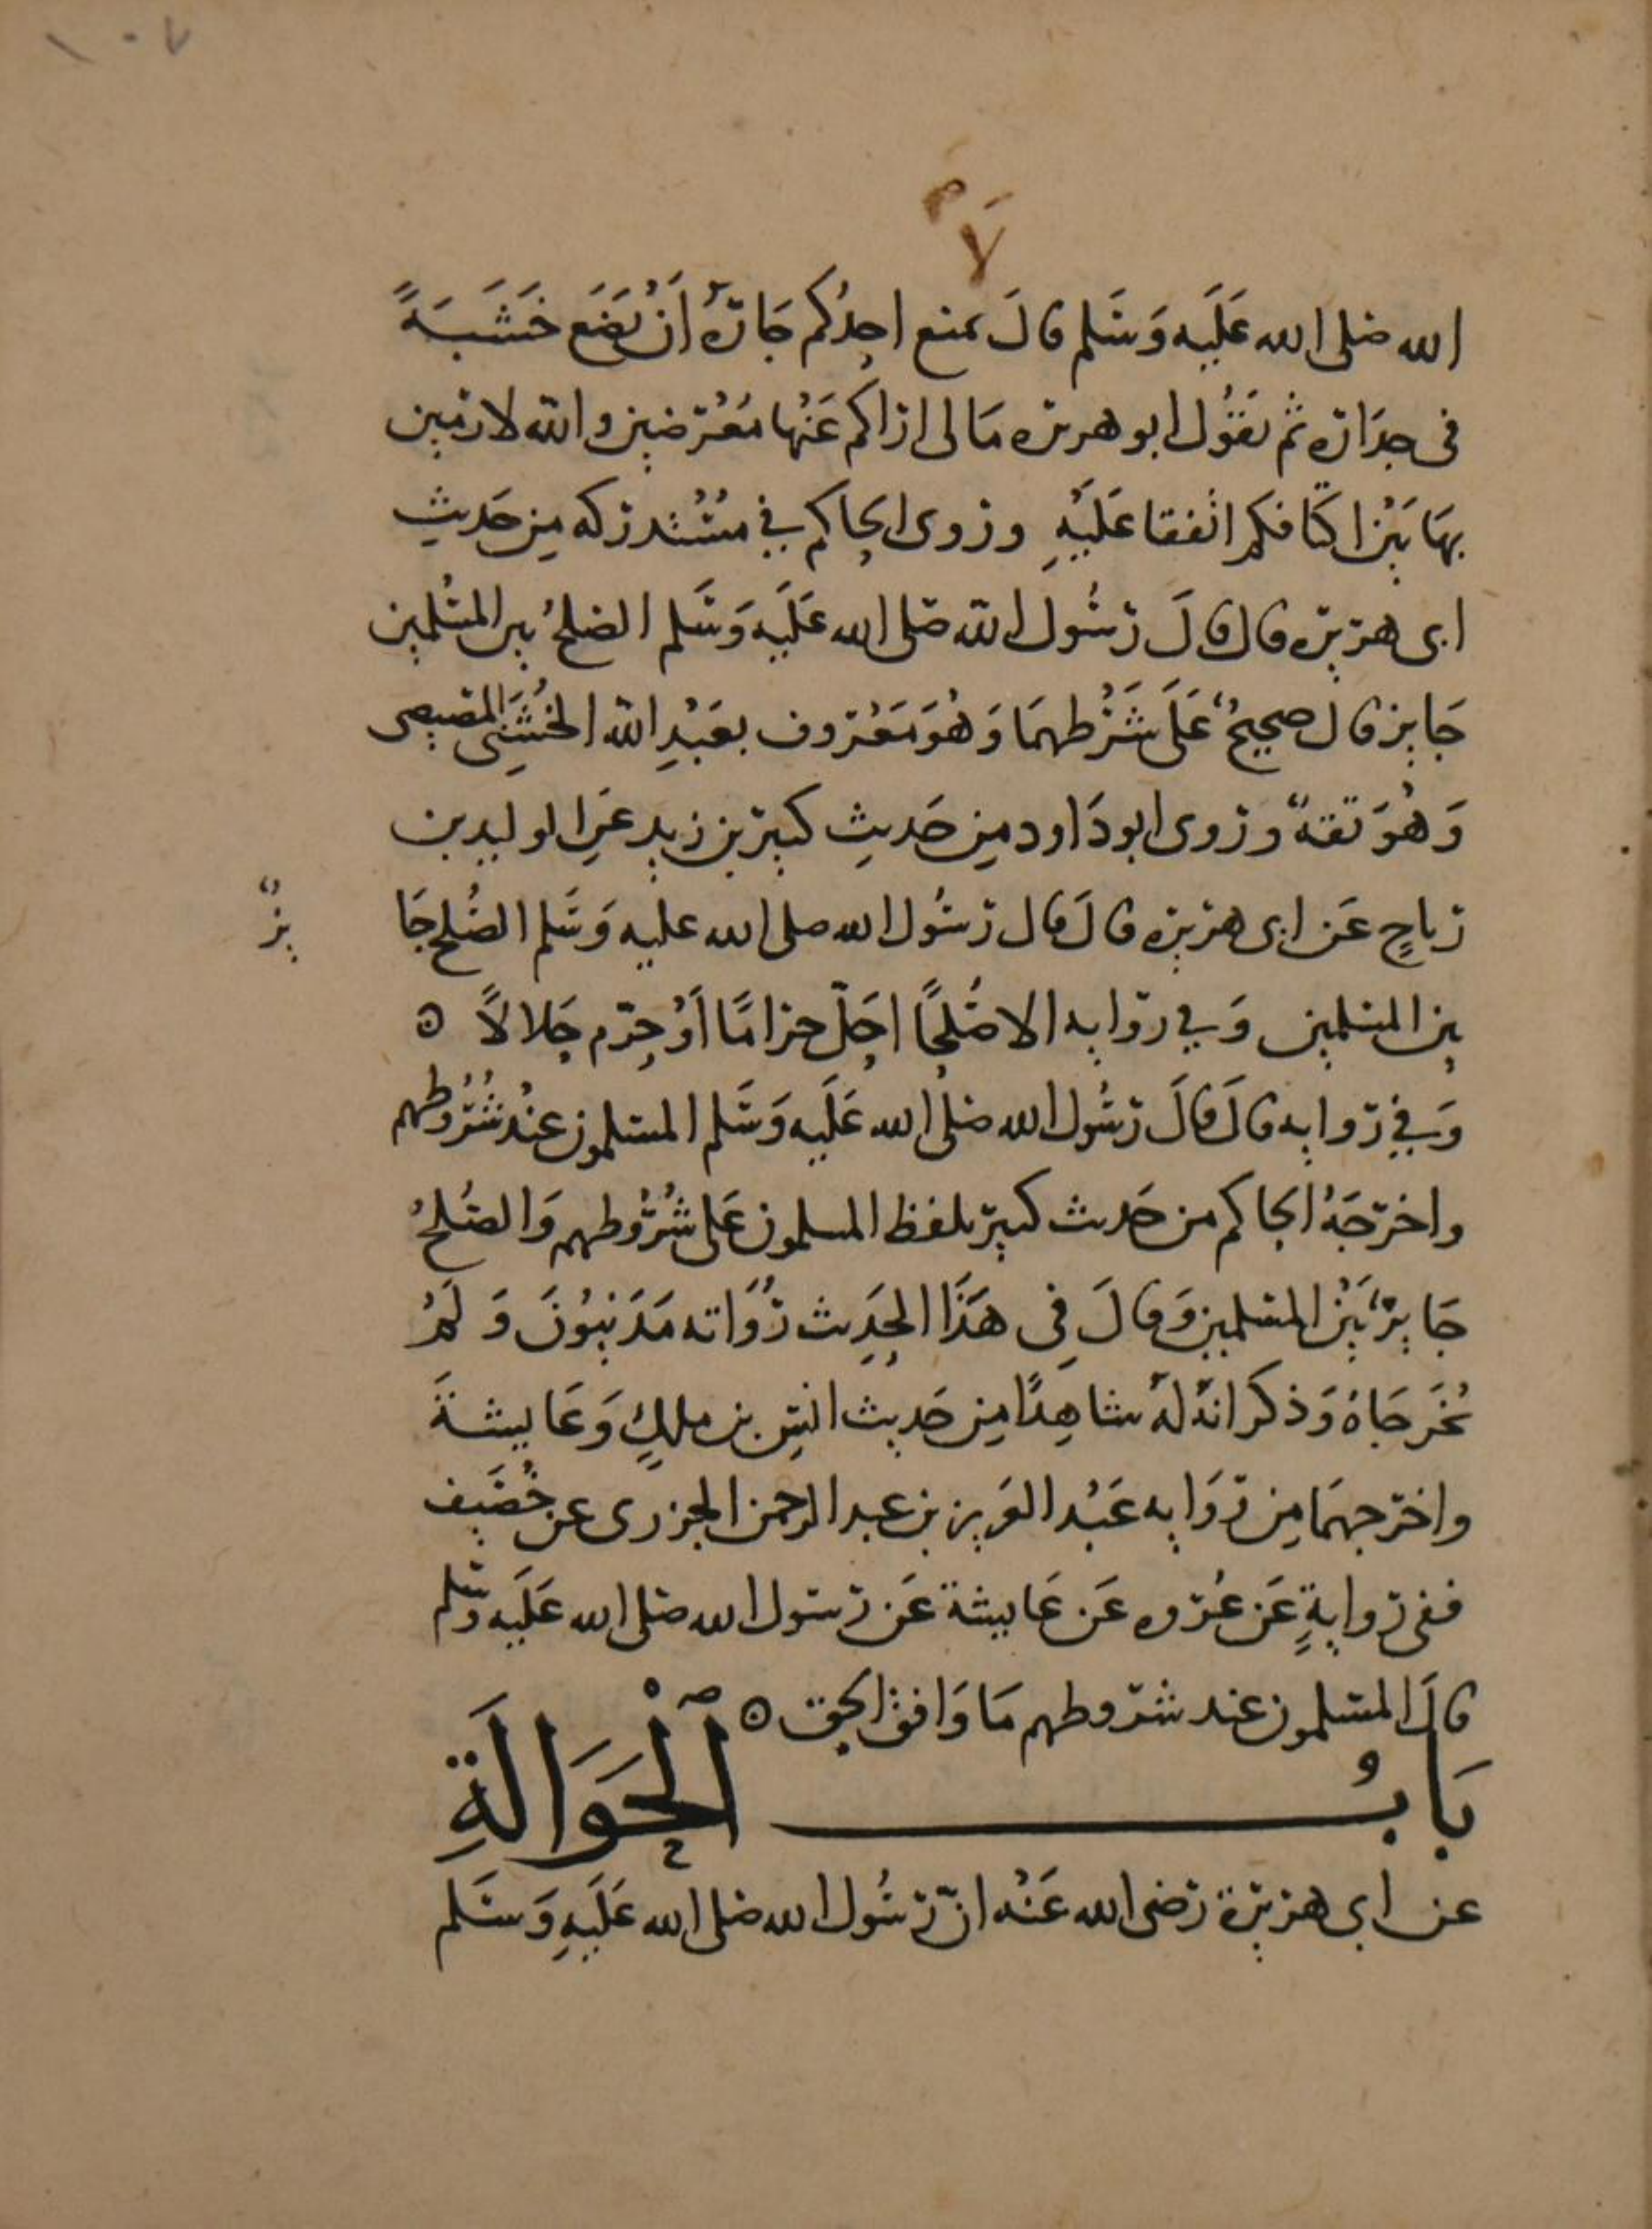 ١٠٧
لَا
الله صلى الله عَلَيه وَسَلم قالَ يمنع احدُكم جَارَهُ أَنْ يَضَع خَشَبَةً
في جدَاره ثم يَقُول ابو هريره مَالى اراكم عَنْها مُعْرضين والله لارمين
بهَا بَيْنَ اكتافكم اتفقا عَلَيْهِ وروى الحاكم في مُسْتَدركه مِن حَديثِ
ابى هريره قال قالَ رسُول الله صَلى الله عَلَيه وَسَلم الصلحُ بين المسْلمين
جَايز قال صحيحٌ عَلَى شَرْطهمَا وَهُوَ مَعْرُوف بعَبْدِ الله الخُشَنِي المصيصى
وَهُوَ ثقةٌ وروى ابو دَاود مِن حَديثِ كثير بن زيدٍ عَنِ الوليد بن
رباحٍ عَن ابى هريره قالَ قال رسُول الله صلى الله عليه وَسَلم الصُلح جَا
يزٌ
بين المسلمين وَفي روَايه الا صُلحًا احَلّ حرامًا أوْ حرّم حَلالاً ه
وَفي رواية قالَ قالَ رسُول الله صلى الله عَلَيه وَسَلم المسلمون عنْد شُرُوطهم
واخرَجَهُ الحاكم من حَديث كثير بلفظ المسلمون عَلى شُرُوطهم وَالصُلحُ
جَايزٌ بَيْنَ المسْلمين وَقالَ فِى هَذَا الحَدِيث رُوَاته مَدَنيُونَ وَلمْ
يُخَرجَاهُ وَذكر انّهُ لهُ شاهِدًا مِن حَديث انَسِ بن ملكٍ وَعَايشةَ
واخرجهمَا مِن روَايه عَبْد العَزيز بن عبد الرحمن الجزرى عن خُصَيف
ففى روايةٍ عَن عُروه عَن عَايشة عَن رسُول الله صَلى الله عَلَيه وسَلم
قالَ المسْلمون عند شروطهم مَا وَافقَ الحَق ه
بَابُ الْحَوَالَةِ
عن ابى هريرة رَضى الله عَنْه انّ رسُول الله صَلى الله عَلَيهِ وَسَلم